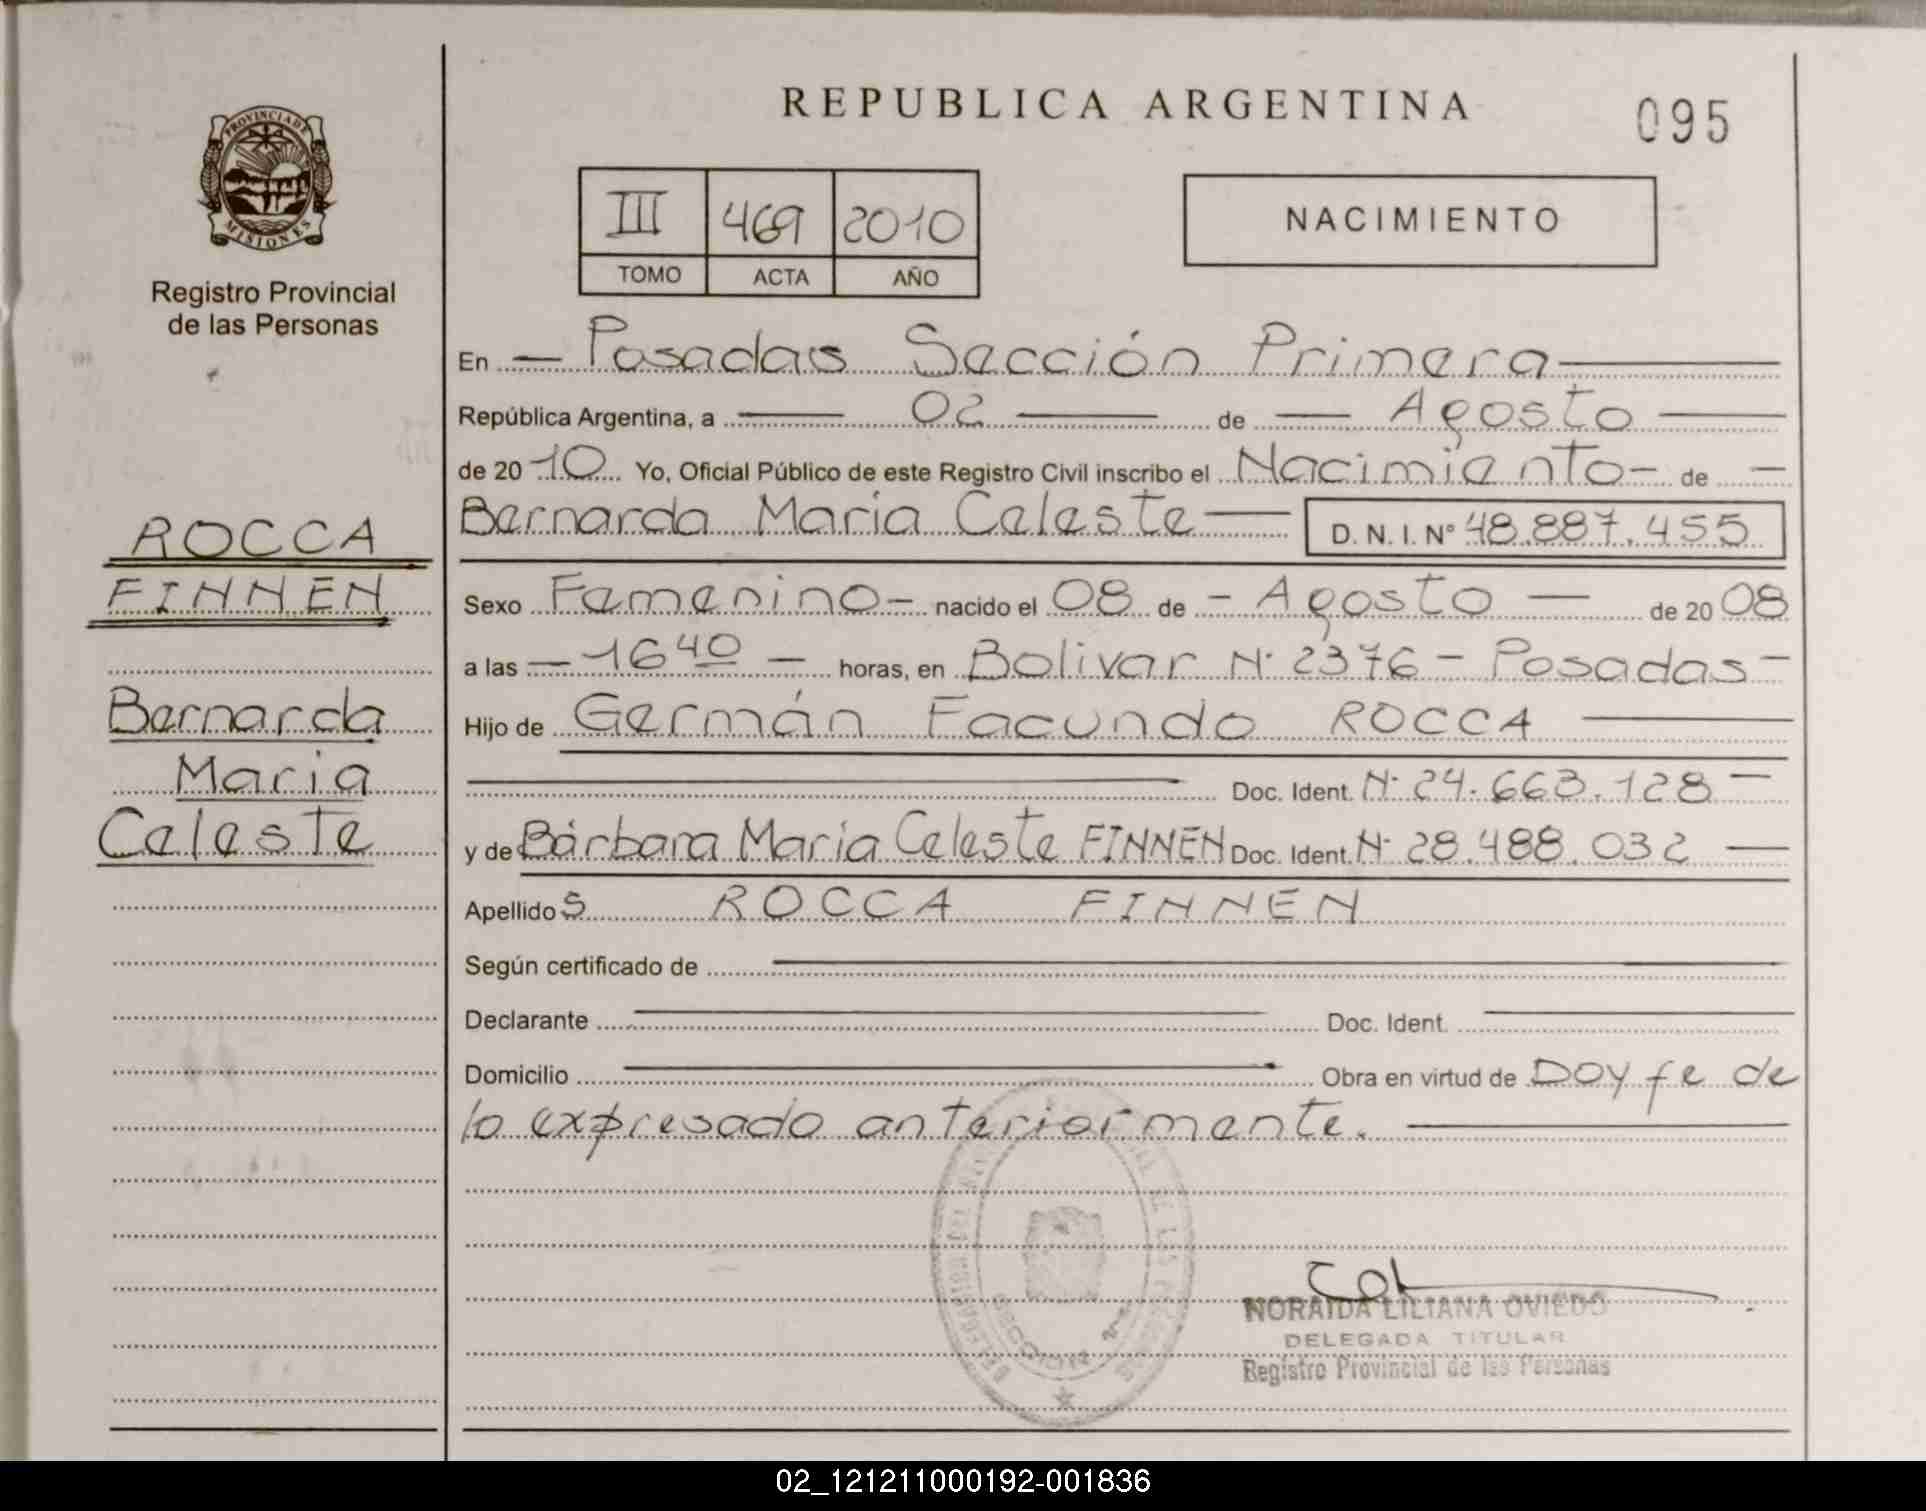 REPUBLICA ARGENTINA
095
PROVINCIA DE
MISIONES
Registro Provincial
de las Personas
III 469 2010
TOMO ACTA AÑO
NACIMIENTO
En Posadas Sección Primera
República Argentina, a 02 de Agosto
de 2010 Yo, Oficial Público de este Registro Civil inscribo el Nacimiento de
Bernarda María Celeste D. N. I. Nº 48.887.455
ROCCA
FINNEN
Bernarda
Maria
Celeste
Sexo Femenino nacido el 08 de Agosto de 2008
a las 16 40 horas, en Bolivar Nº 2376 - Posadas
Hijo de Germán Facundo ROCCA
Doc. Ident. Nº 24.663.128
y de Bárbara María Celeste FINNEN Doc. Ident. Nº 28.488.032
Apellidos ROCCA FINNEN
Según certificado de
Declarante Doc. Ident.
Domicilio Obra en virtud de Doy fe de
lo expresado anteriormente.
NORAIDA LILIANA OVIEDO
DELEGADA TITULAR
Registro Provincial de las Personas
02_121211000192-001836